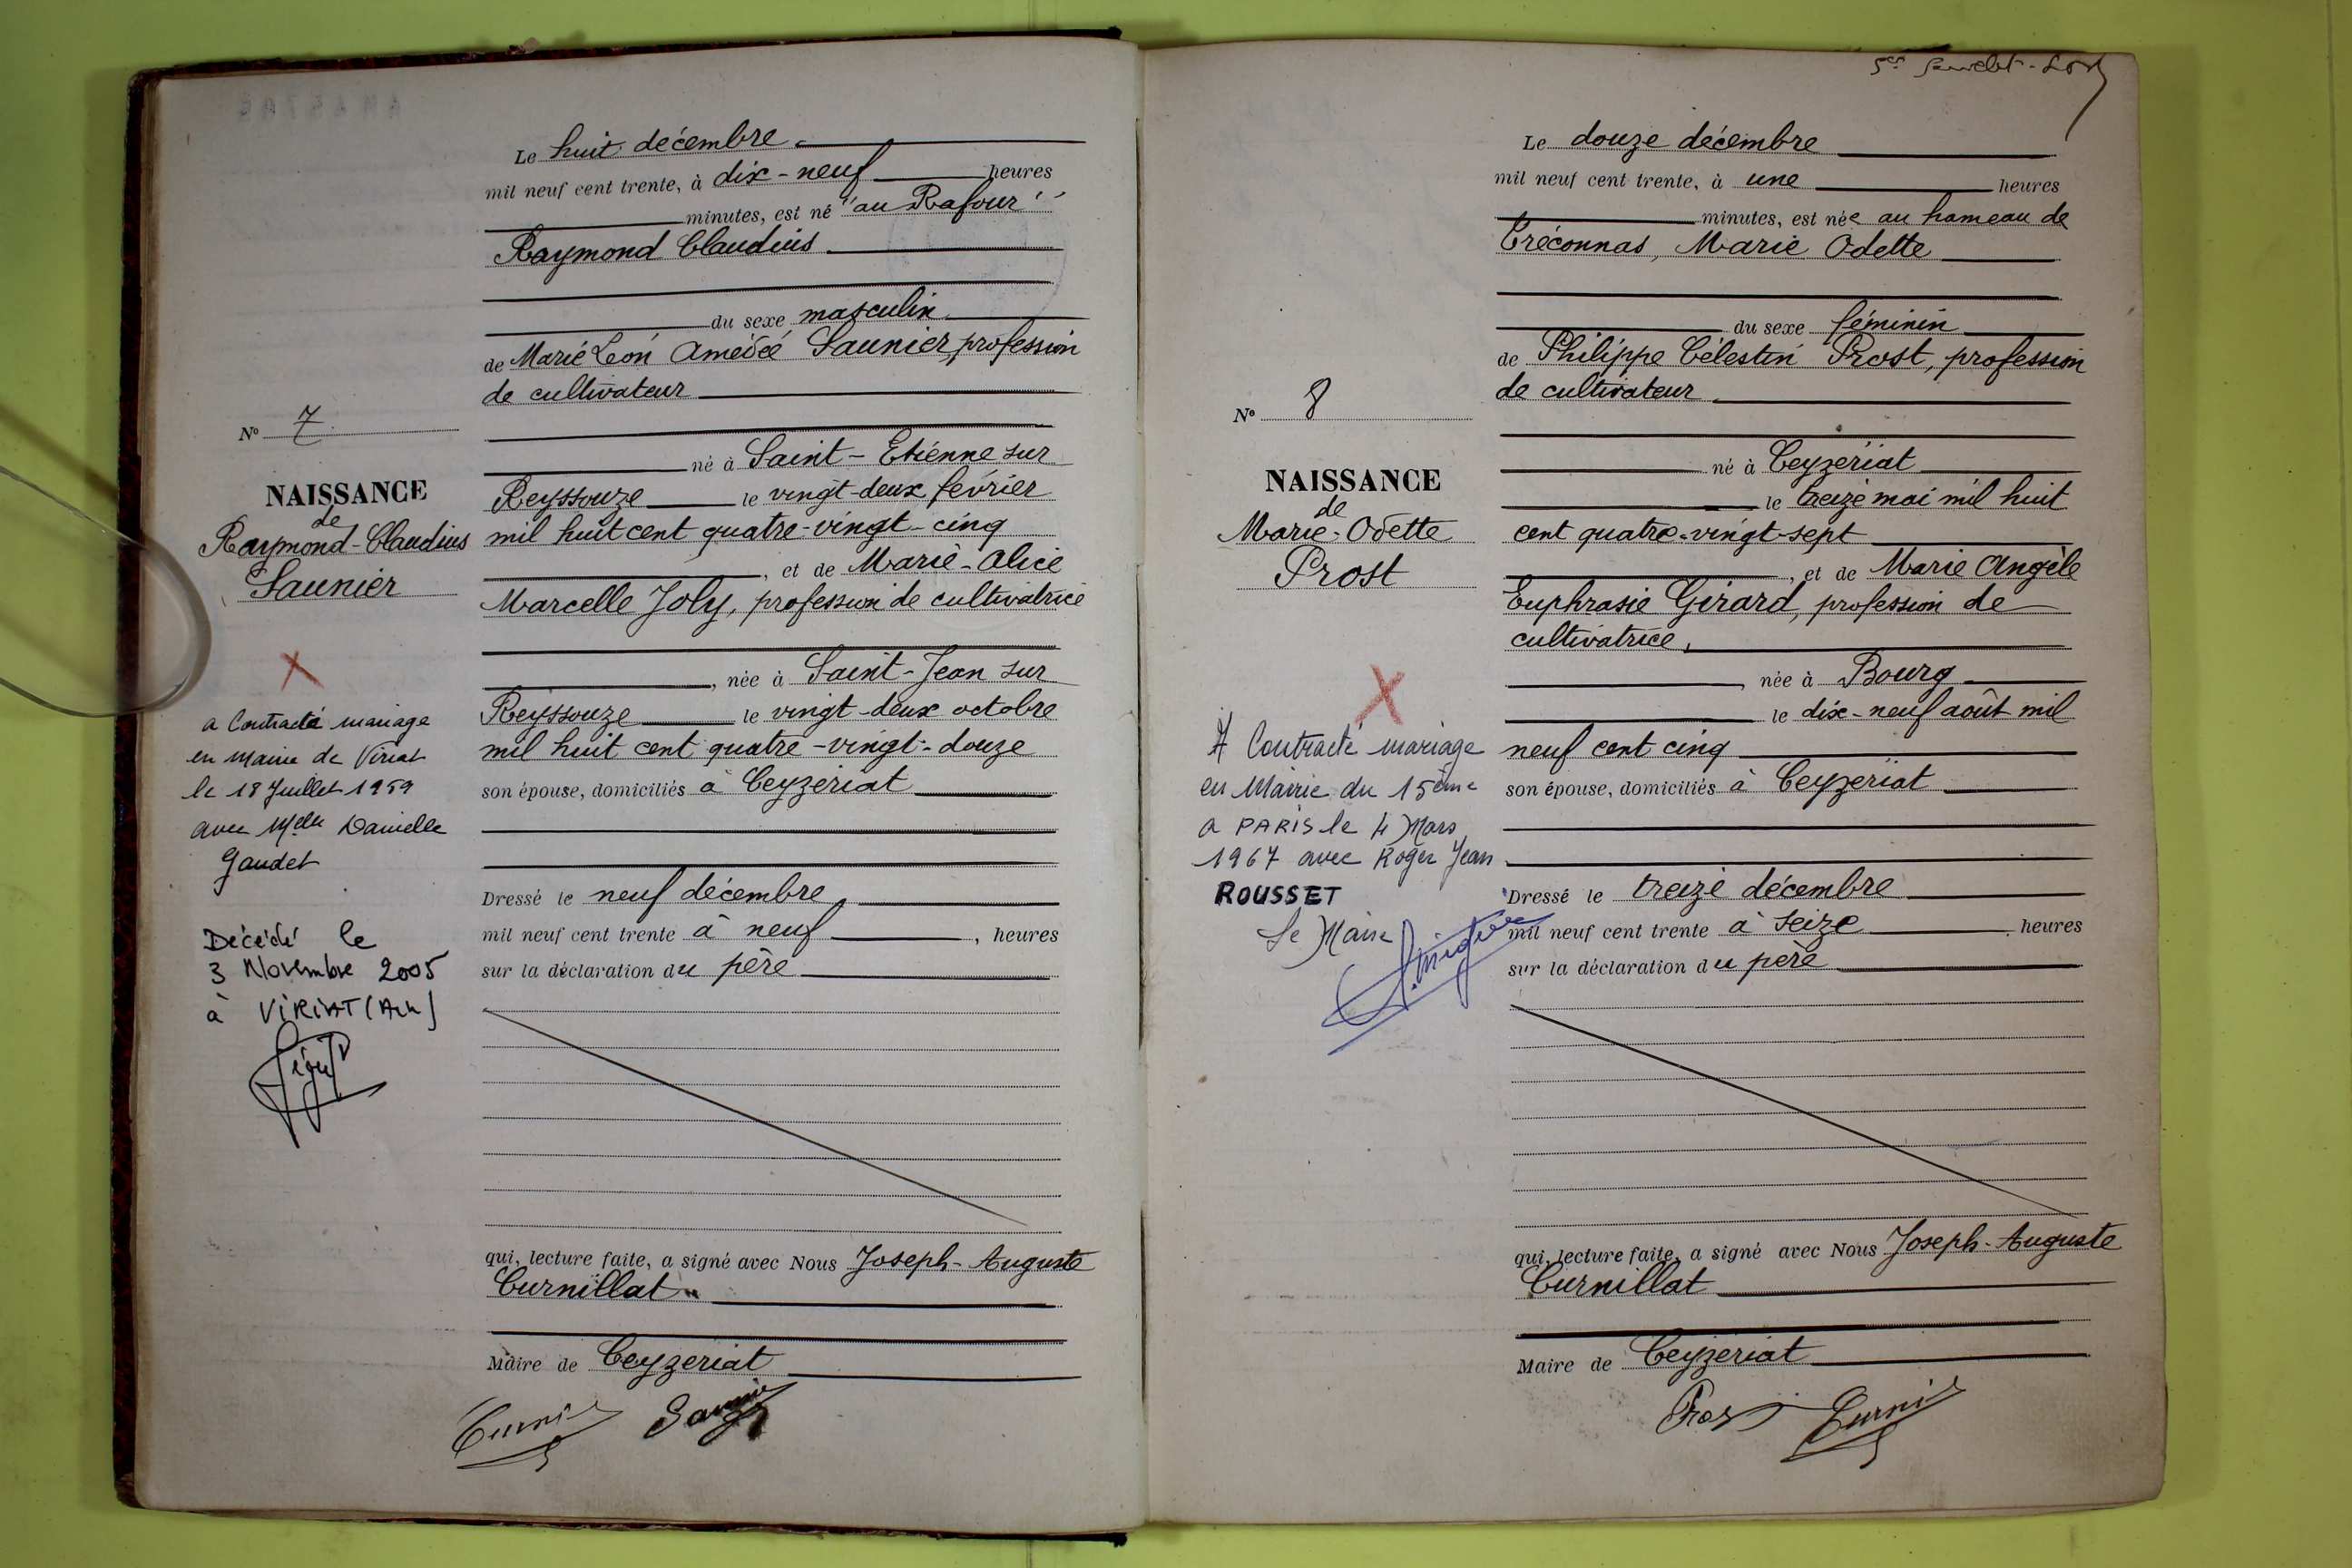 Le huit décembre
mil neuf cent trente, à dix-neuf heures
minutes, est né "au Rafour"
Raymond Claudius
du sexe masculin
de Marie Léon Amédée Saunier, profession
de cultivateur
né à Saint-Etienne sur
Reyssouze le vingt-deux février
mil huit cent quatre-vingt-cinq
, et de Marie-Alice
Marcelle Joly, profession de cultivatrice
, née à Saint-Jean sur
Reyssouze le vingt-deux octobre
mil huit cent quatre-vingt-douze
son épouse, domiciliés à Ceyzériat
Dressé le neuf décembre
mil neuf cent trente à neuf , heures
sur la déclaration du père
qui, lecture faite, a signé avec Nous Joseph-Auguste
Curnillat
Maire de Ceyzeriat
N° 7
NAISSANCE
de
Raymond-Claudius
Saunier
X
a Contracté mariage
en Mairie de Viriat
le 18 Juillet 1959
avec Melle Danielle
Gaudet
Décédé le
3 Novembre 2005
à VIRIAT (Ain)
Le douze décembre
mil neuf cent trente, à une heures
minutes, est née au hameau de
Tréconnas, Marie Odette
du sexe féminin
de Philippe Célestin Prost, profession
de cultivateur
né à Ceyzériat
le treize mai mil huit
cent quatre-vingt-sept
, et de Marie Angèle
Euphrasie Girard, profession de
cultivatrice,
, née à Bourg
le dix-neuf août mil
neuf cent cinq
son épouse, domiciliés à Ceyzeriat
Dressé le treize décembre
mil neuf cent trente à seize heures
sur la déclaration du père
qui, lecture faite, a signé avec Nous Joseph-Auguste
Curnillat
Maire de Ceyzeriat
Prost
N° 8
NAISSANCE
de
Marie-Odette
Prost
X
A Contracté mariage
en Mairie du 15ème
a PARIS le 4 Mars
1967 avec Roger Jean
ROUSSET
Le Maire